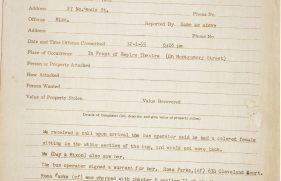 Address 27 No. Lewis St. Phone No.
Offense Misc. Reported By Same as above
Address Phone No.
Date and Time Offense Committed 12-1-55 6:06 pm
Place of Occurrence In Front of Empire Theatre (On Montgomery Street)
Person or Property Attacked
How Attacked
Person Wanted
Value of Property Stolen Value Recovered
Details of Complaint (list, describe and give value of property stolen)
We received a call upon arrival the bus operator said he had a colored female
sitting in the white section of the bus, and would not move back.
We (Day & Mixon) also saw her.
The bus operator signed a warrant for her. Rosa Parks, (cf) 634 Cleveland Court.
Rosa Parks (cf) was charged with chapter 6 section 11 of the